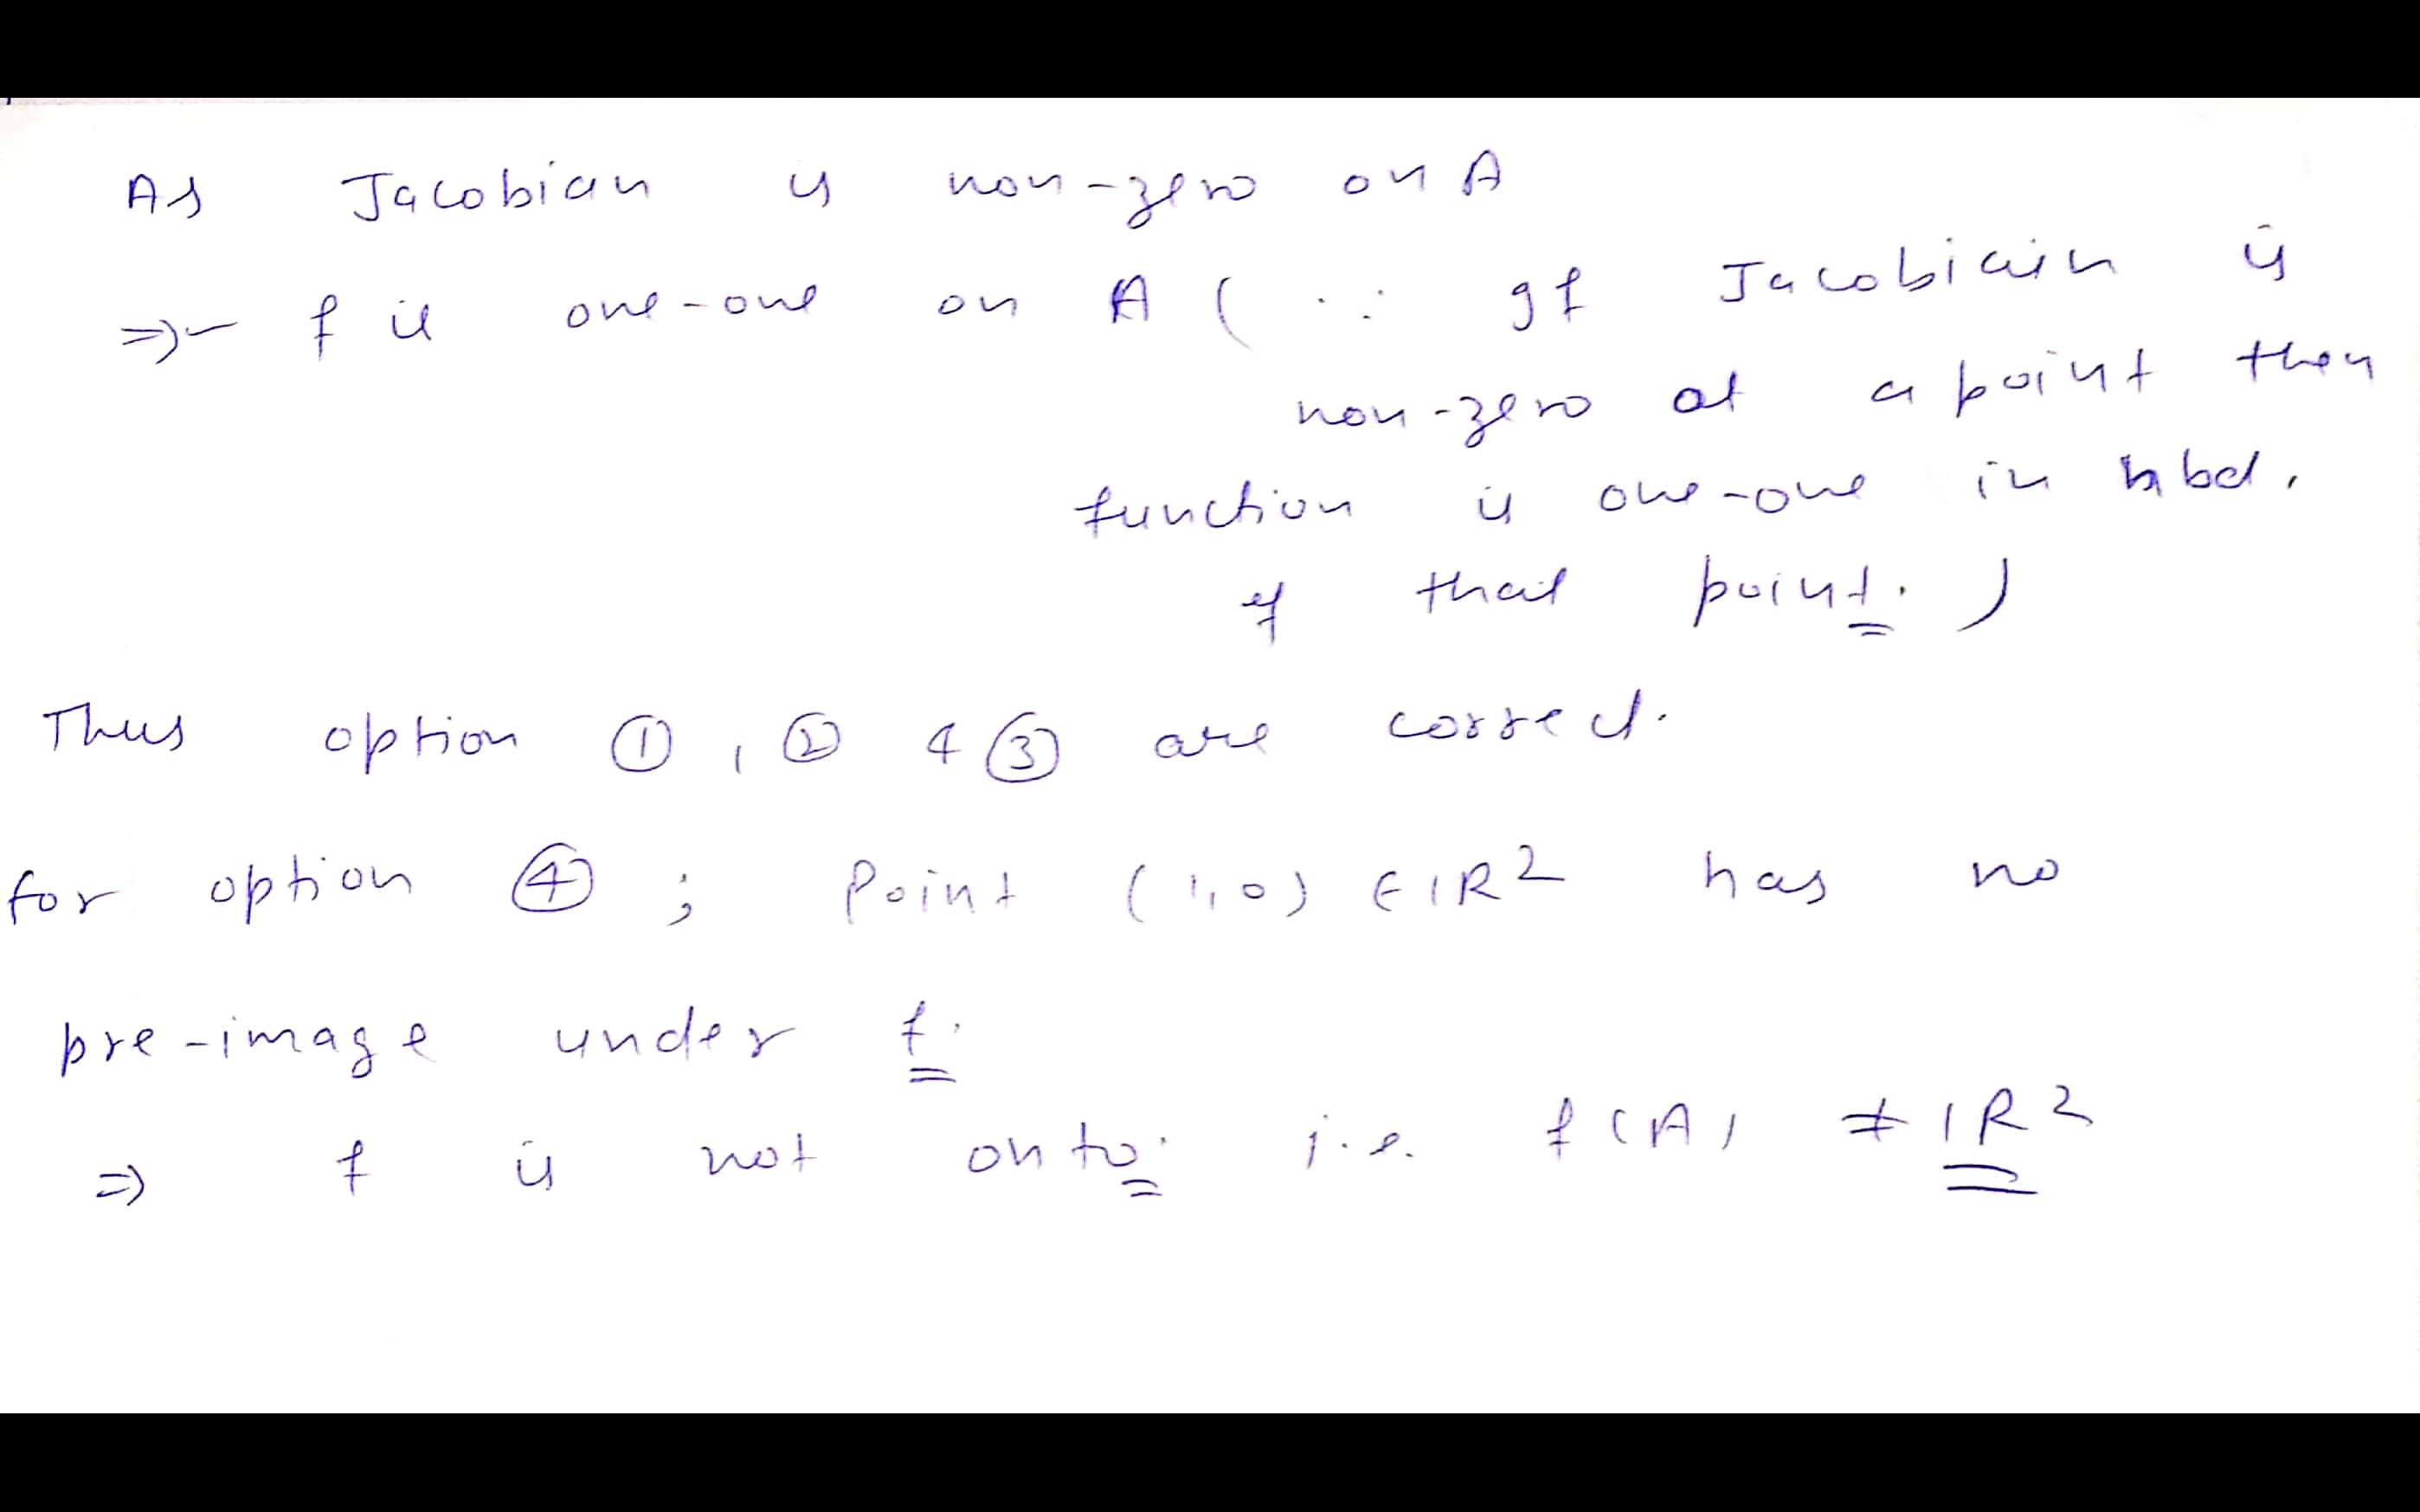 As Jacobian is non-zero on A
⇒ f is one-one on A ( ∵ If Jacobian is
non-zero at a point then
function is one-one in nbd.
of that point. )
Thus option ① , ② & ③ are correct.
for option ④ ; Point (1,0) ∈ ℝ² has no
pre-image under f.
⇒ f is not onto. i.e. f(A) ≠ ℝ²